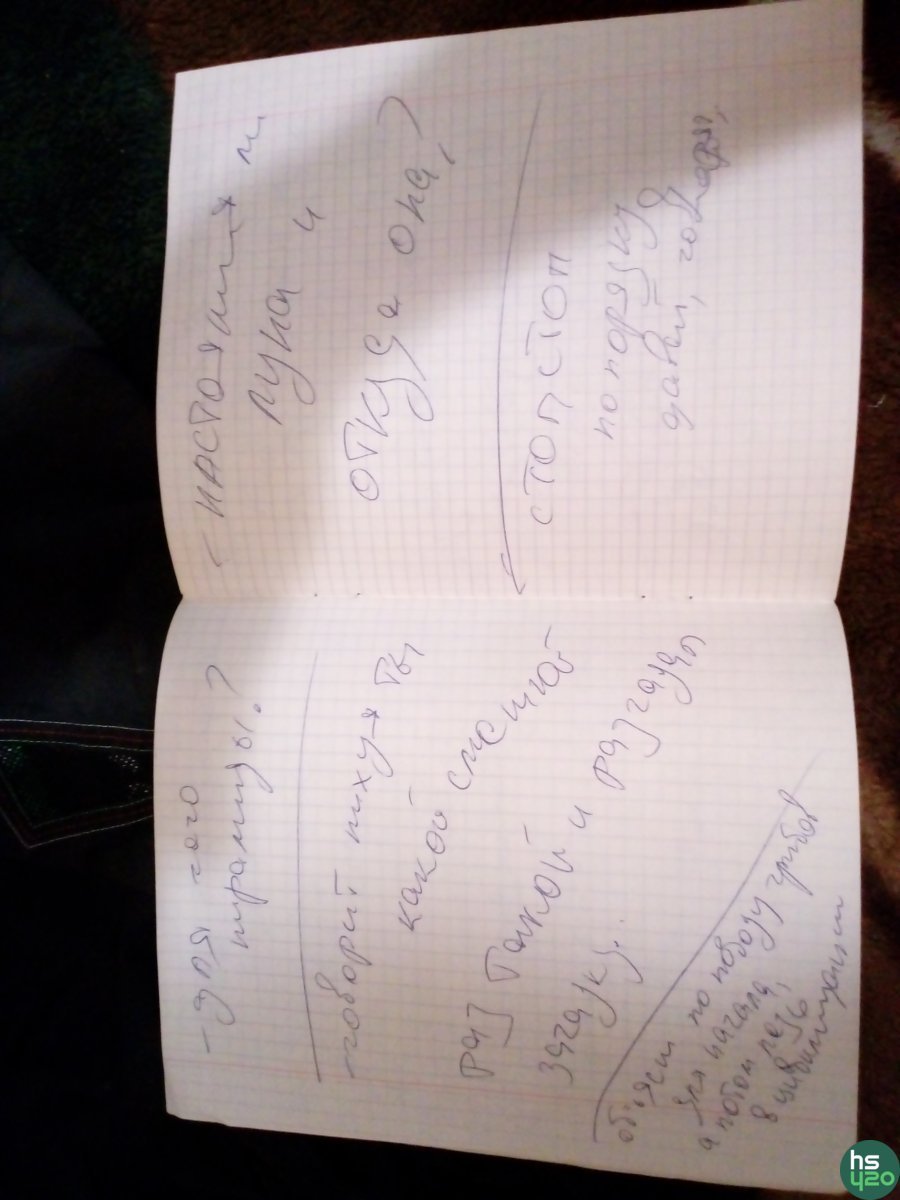 - для чего
пирамиды?
- говорит пиху я ты
какой смешной
раз такой и разгадал
загадку..
объясни по поводу грибов
для начала,
а потом лезь
в цивилизации
- настоящая ли
луна и
откуда она?
стоп стоп
по порядку
давай, говорят,
hs
420